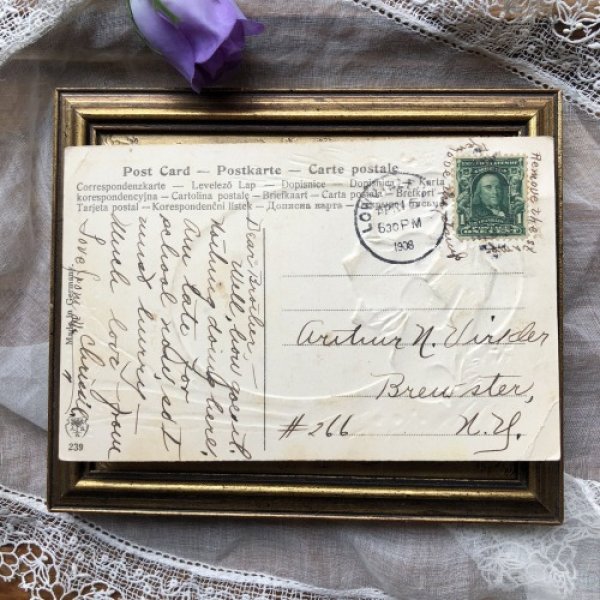 Post Card — Postkarte — Carte postale
Correspondenzkarte — Levelező Lap — Dopisnice — Dopisnica — Karta
korespondencyjna — Cartolina postale — Briefkaart — Carta postala — Brefkort
Tarjeta postal — Korespondenční lístek — Дописна карта —
530 PM
1908
Remove this
Dear Brother,
Well, how goes it.
Nothing doing here.
Am late for
school now so I
must hurry
Much love from
Love from all
Arthur N. Winkler
Brewster,
#266 N.Y.
Made in Germany
239